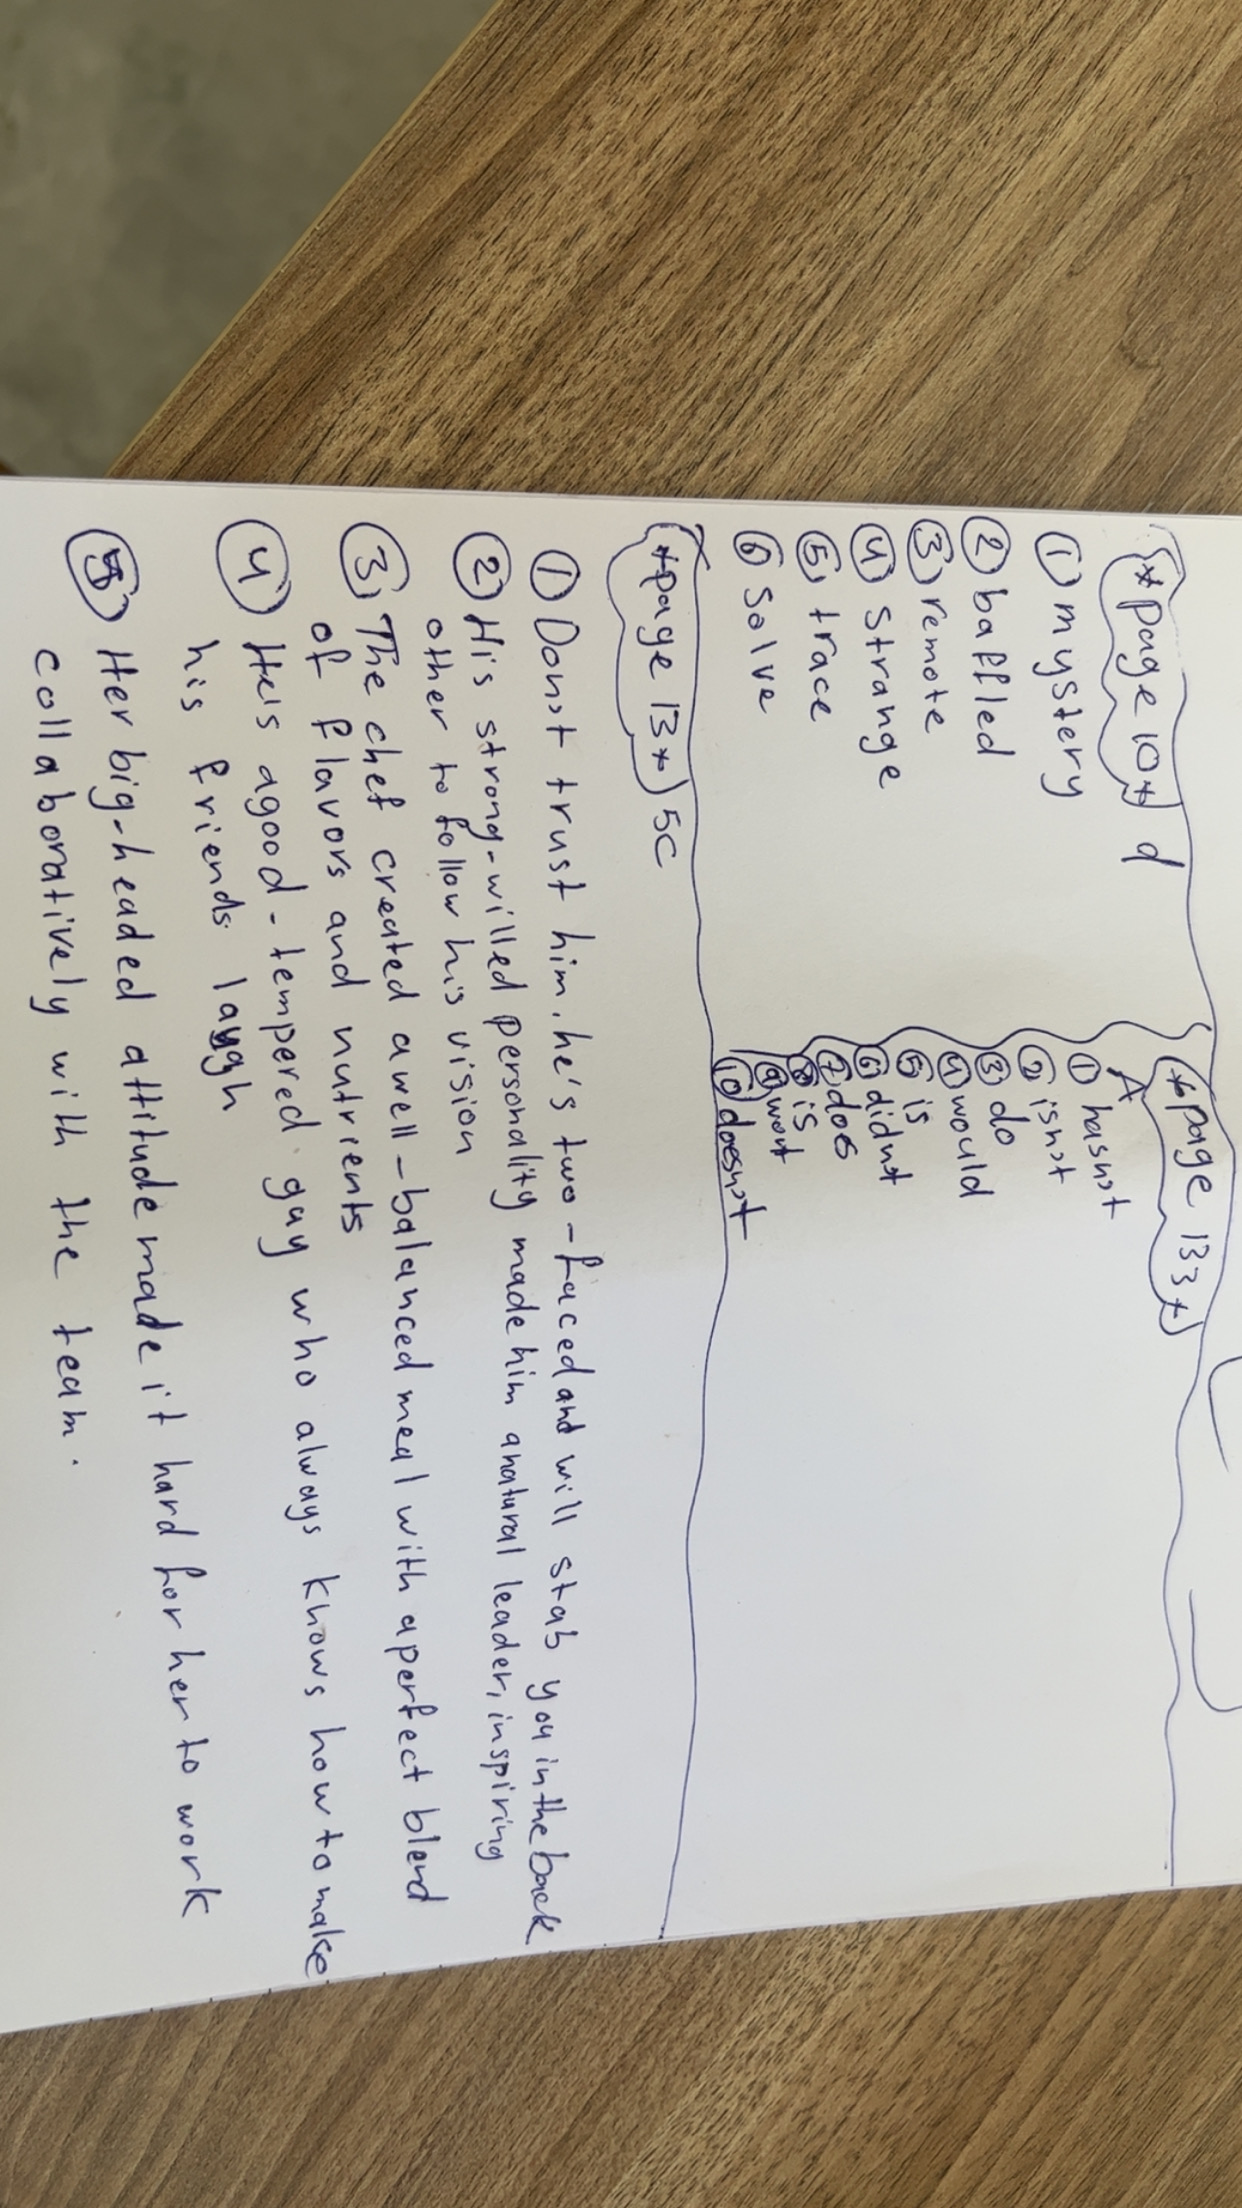 *page 10* d
① mystery
② baffled
③ remote
④ strange
⑤ trace
⑥ solve
*page 133*
A
① hasn't
② isn't
③ do
④ would
⑤ is
⑥ didnt
⑦ does
⑧ is
⑨ wont
⑩ doesn't
*page 13* 5C
① Don't trust him, he's two-faced and will stab you in the back
② His strong-willed personality made him anatural leader, inspiring
other to follow his vision
③ The chef created awell-balanced meal with aperfect blend
of flavors and nutrients
④ He's agood-tempered guy who always knows how to make
his friends laugh
⑤ Her big-headed attitude made it hard for her to work
collaboratively with the team.